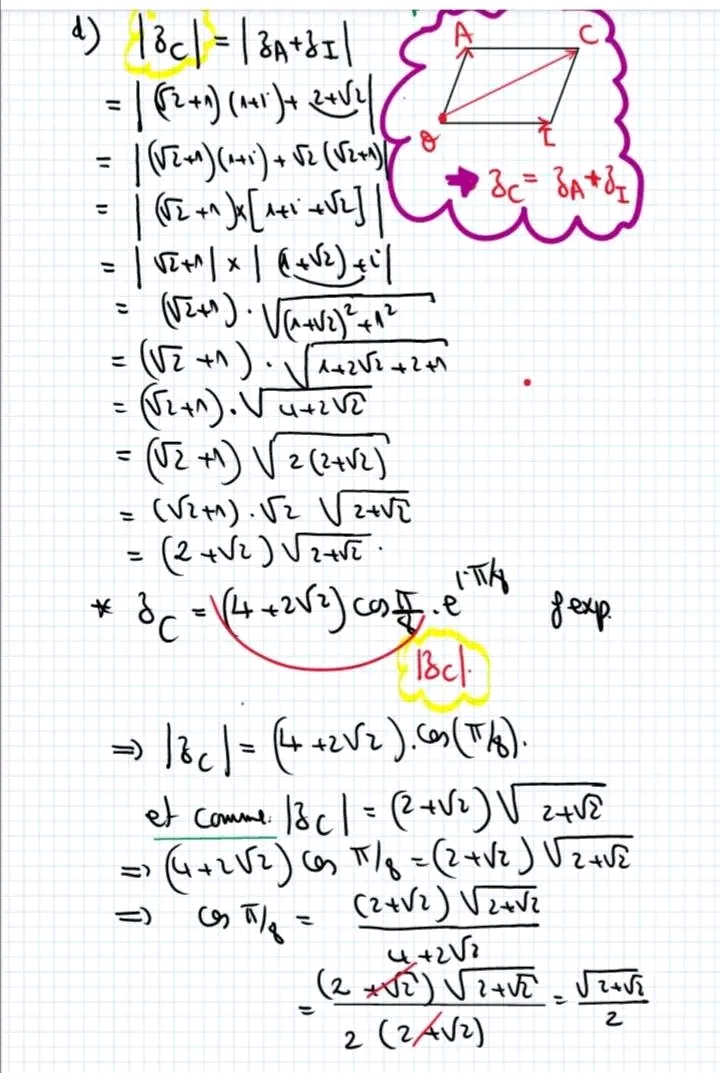 d) |z_C| = |z_A + z_I|
= |(√2+1)(1+i) + 2+√2|
= |(√2+1)(1+i) + √2(√2+1)|
= |(√2+1)×[1+i+√2]|
= |√2+1| × |(1+√2)+i|
= (√2+1) · √((1+√2)²+1²)
= (√2+1) · √(1+2√2+2+1)
= (√2+1) · √(4+2√2)
= (√2+1) √(2(2+√2))
= (√2+1) · √2 √(2+√2)
= (2+√2) √(2+√2) .
A C
O I
➡ z_C = z_A + z_I
* z_C = (4+2√2) cos π/8 · e^(iπ/8) f exp.
|z_C|.
⇒ |z_C| = (4+2√2) . cos(π/8).
et comme: |z_C| = (2+√2) √(2+√2)
⇒ (4+2√2) cos π/8 = (2+√2) √(2+√2)
⇒ cos π/8 = (2+√2) √(2+√2) / 4+2√2
= (2+√2) √(2+√2) / 2(2+√2) = √(2+√2) / 2